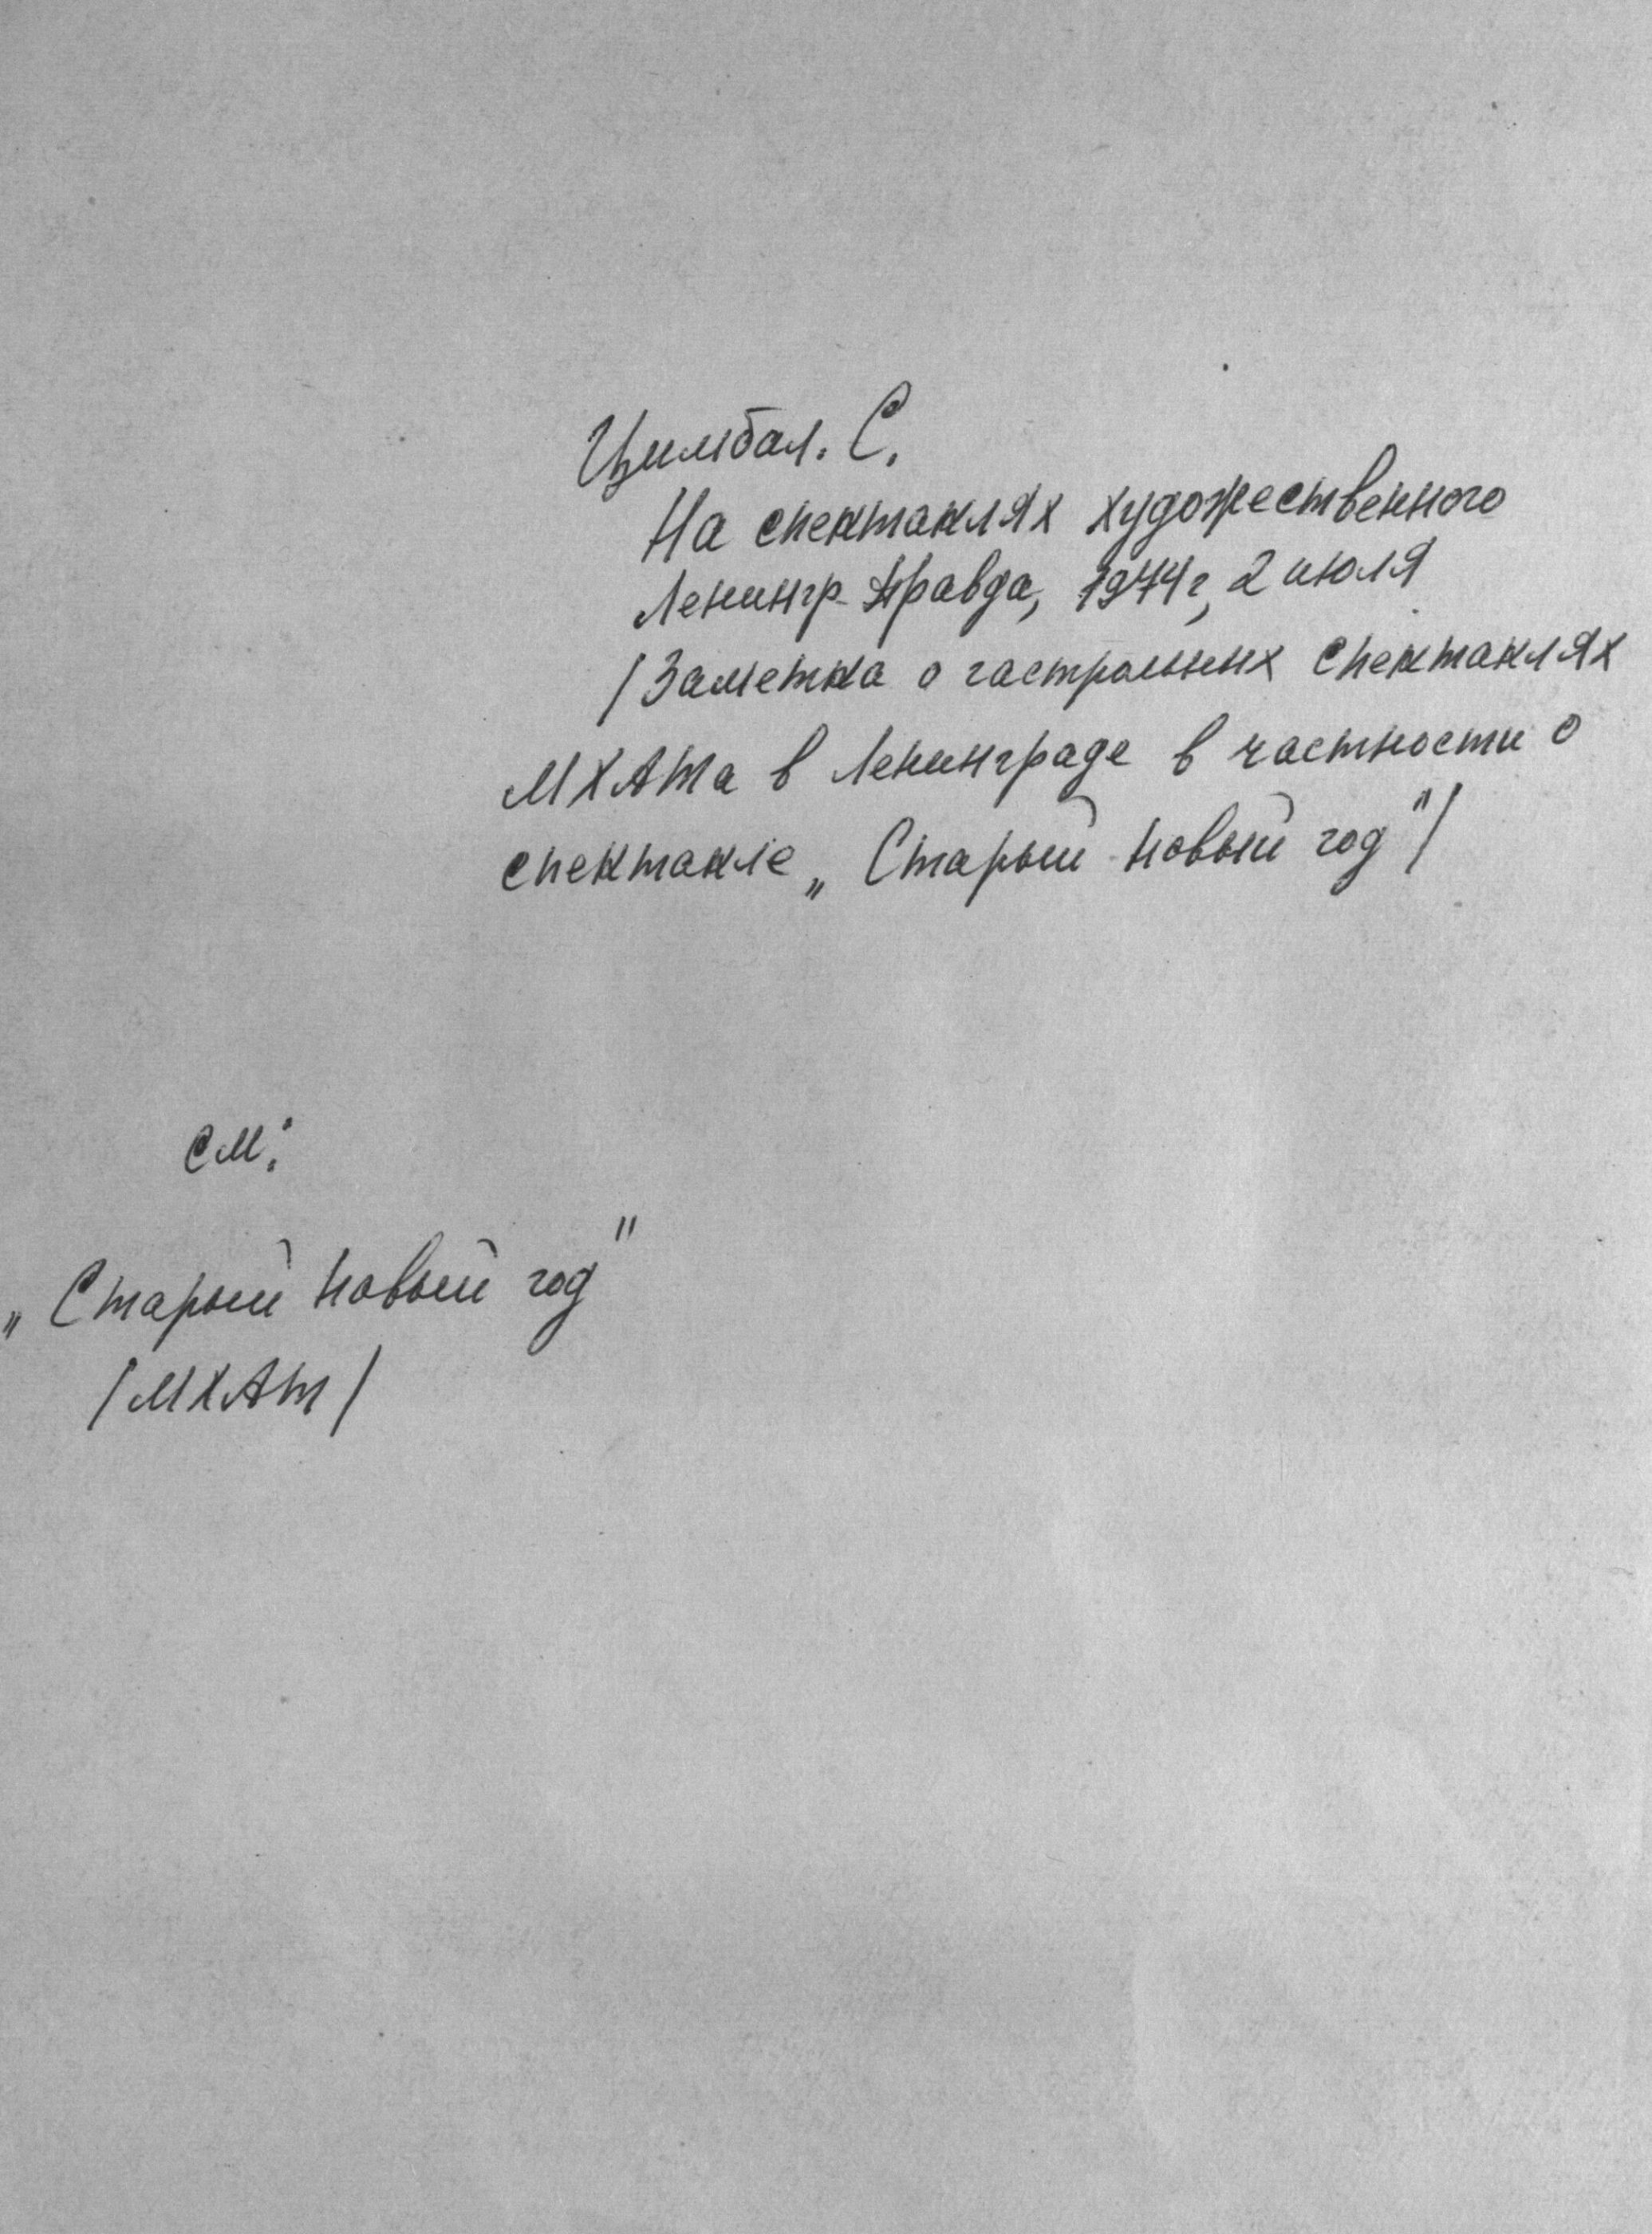 Цимбал. С.
На спектаклях художественного
Ленингр. правда, 1974 г, 2 июля
/Заметка о гастрольных спектаклях
МХАТа в Ленинграде в частности о
спектакле „Старый новый год"/
см:
„Старый новый год"
/МХАТ/